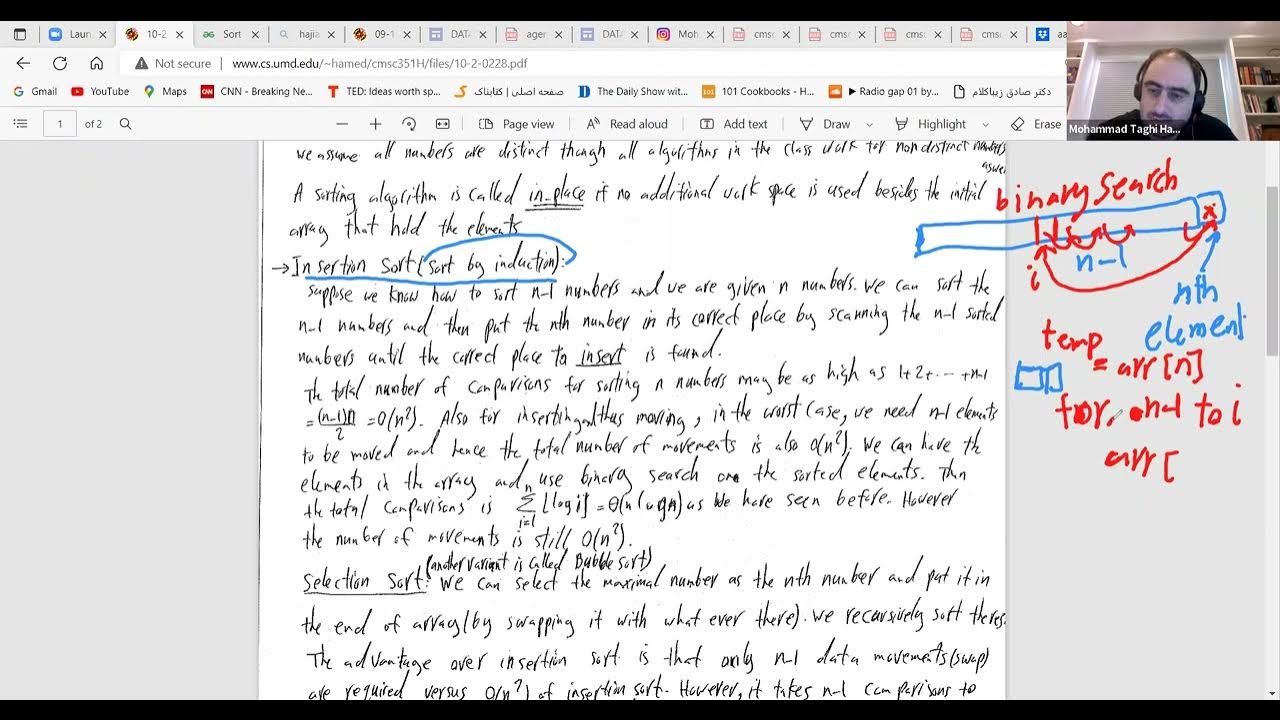 Laun
10-2
Sort
hajia
09-1
DATA
agen
DATA
Moh
cmsc
cmsc
cmsc
cmsc
Not secure
www.cs.umd.edu/~hamed/cmsc351H/files/10-2-0228.pdf
Gmail
YouTube
Maps
CNN - Breaking Ne...
TED: Ideas worth sp...
صفحه اصلی | کتابناک
The Daily Show wit...
101 Cookbooks - H...
Radio gap 01 by...
دکتر صادق زیباکلام
1 of 2
Page view
Read aloud
Add text
Draw
Highlight
Erase
Mohammad Taghi Ha...
we assume all numbers are distinct though all algorithms in the class work for nondistinct numbers
A sorting algorithm is called in_place if no additional work space is used besides the initial
array that hold the elements
→ Insertion Sort (sort by induction):
suppose we know how to sort n-1 numbers and we are given n numbers. We can sort the
n-1 numbers and then put the nth number in its correct place by scanning the n-1 sorted
numbers until the correct place to insert is found.
The total number of comparisons for sorting n numbers may be as high as 1+2+...+n-1
= (n-1)n/2 = O(n²). Also for inserting and thus moving, in the worst case, we need n-1 elements
to be moved and hence the total number of movements is also O(n²). We can have the
elements in the array and use binary search on the sorted elements. Then
the total comparisons is Σ i=1 n ⌊log i⌋ = Θ(n log n) as we have seen before. However
the number of movements is still O(n²).
(another variant is called Bubble sort)
Selection Sort: We can select the maximal number as the nth number and put it in
the end of array (by swapping it with what ever there). We recursively sort the res
The advantage over insertion sort is that only n-1 data movements (swap)
are required versus O(n²) of insertion sort. However, it takes n-1 comparisons to
binary search
x
n-1
i
nth
element
temp
= arr[n]
for n-1 to i
arr[